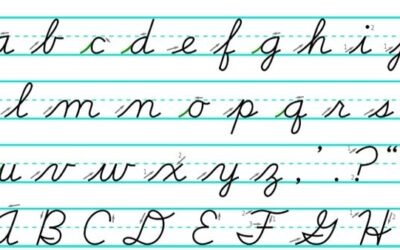 a b c d e f g h i j
l m n o p q r s
u v w x y z , ' . ? “
A B C D E F G H